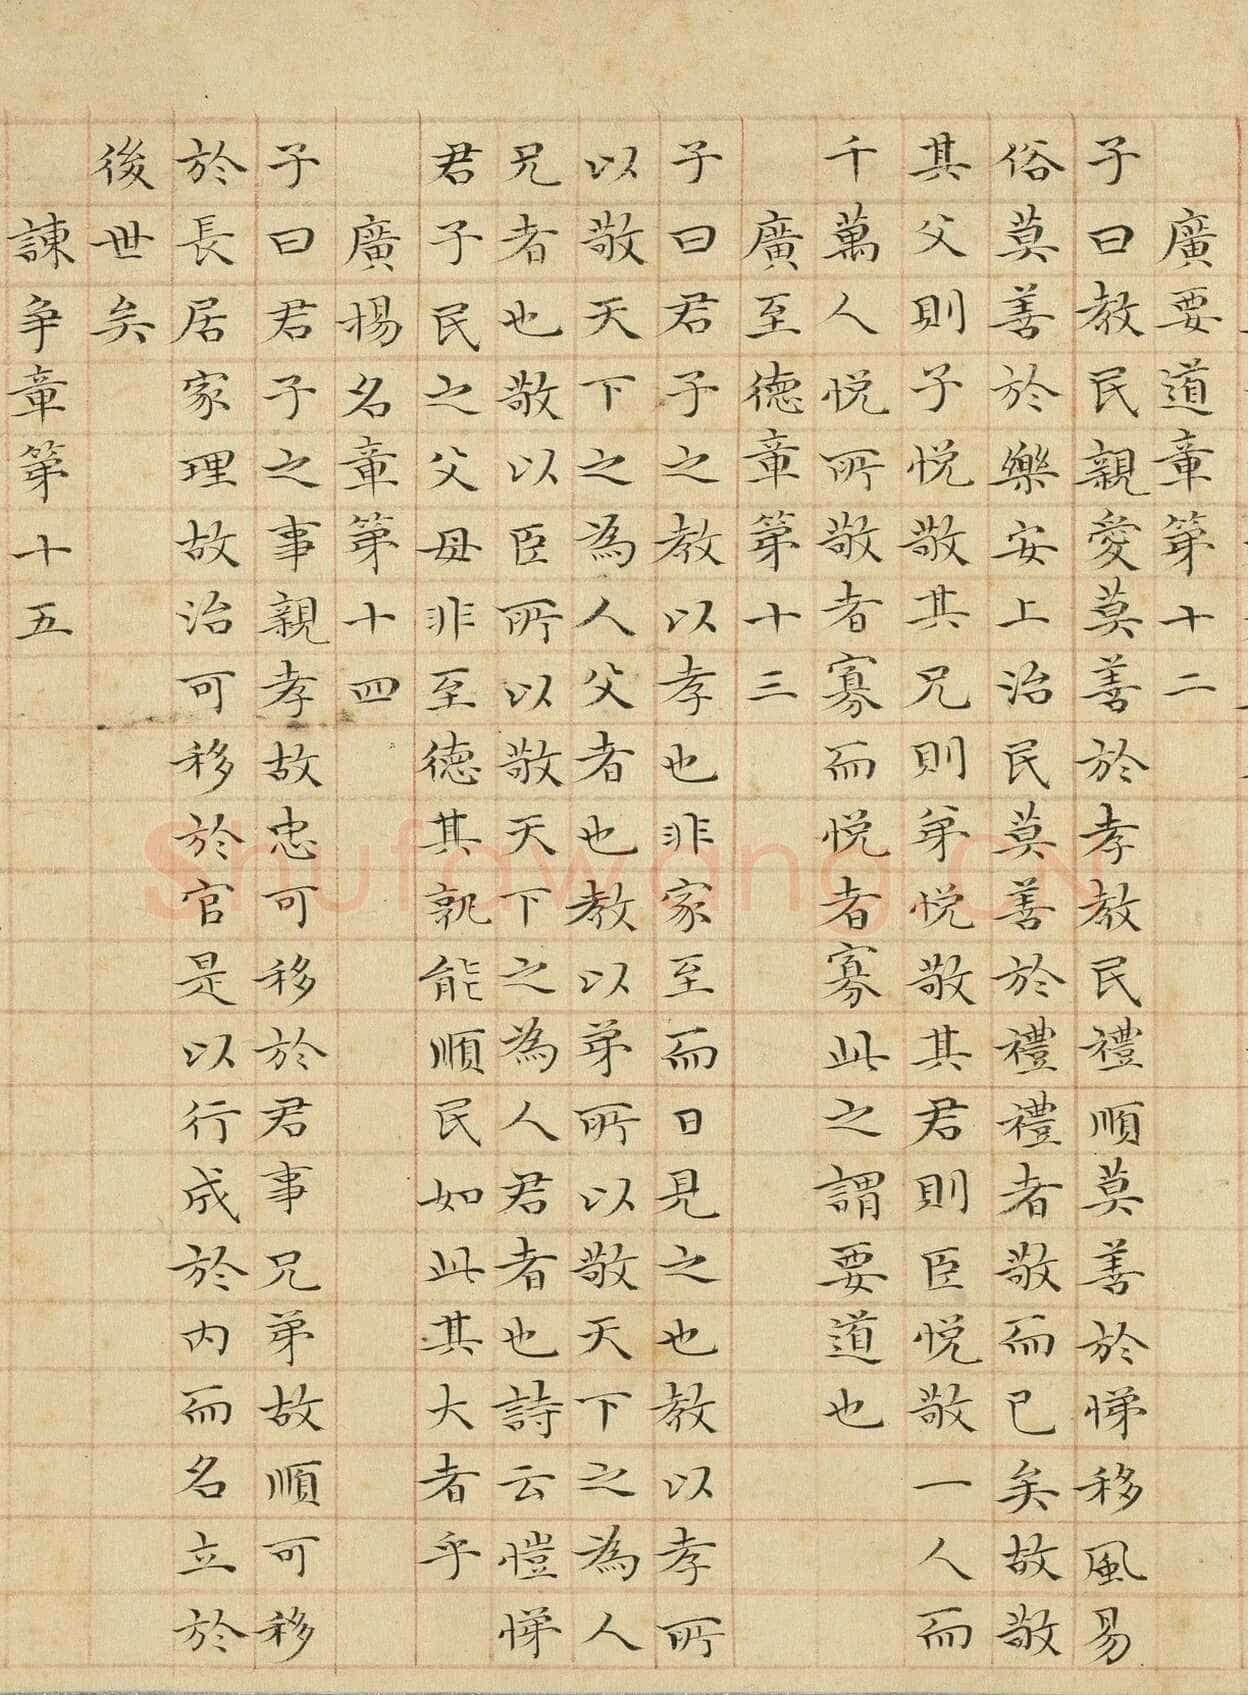 廣要道章第十二
子曰教民親愛莫善於孝教民禮順莫善於悌移風易
俗莫善於樂安上治民莫善於禮禮者敬而已矣故敬
其父則子悅敬其兄則弟悅敬其君則臣悅敬一人而
千萬人悅所敬者寡而悅者寡此之謂要道也
廣至德章第十三
子曰君子之教以孝也非家至而日見之也教以孝所
以敬天下之為人父者也教以弟所以敬天下之為人
兄者也敬以臣所以敬天下之為人君者也詩云愷悌
君子民之父母非至德其孰能順民如此其大者乎
廣揚名章第十四
子曰君子之事親孝故忠可移於君事兄弟故順可移
於長居家理故治可移於官是以行成於內而名立於
後世矣
諫爭章第十五
Shufawang.CN